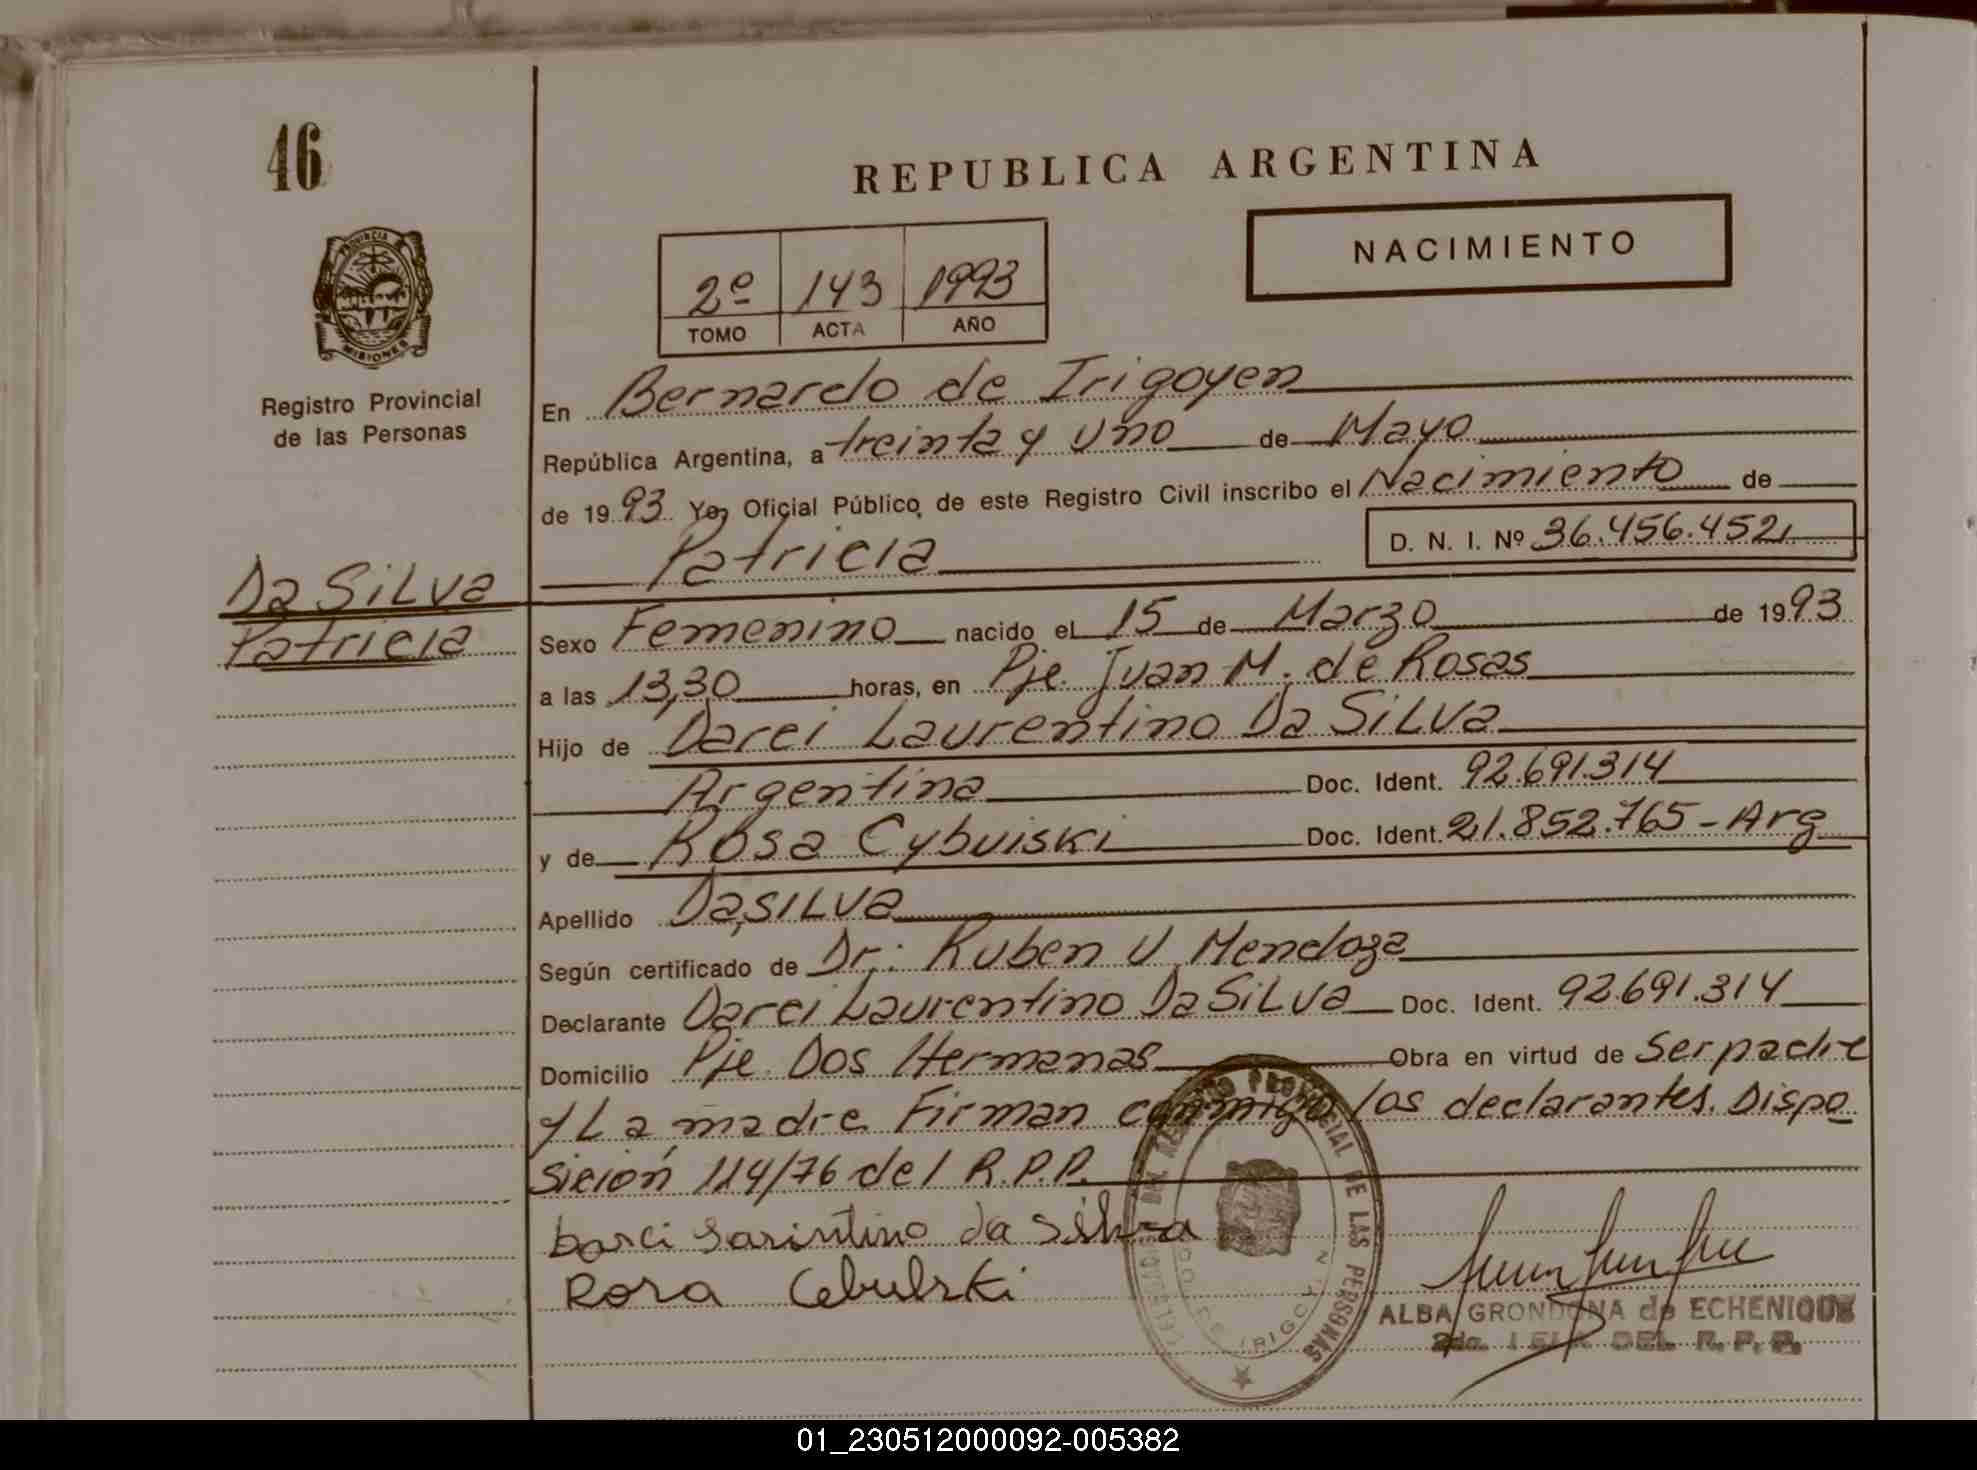 46
REPUBLICA ARGENTINA
NACIMIENTO
2º 143 1993
TOMO ACTA AÑO
PROVINCIA DE
MISIONES
Registro Provincial
de las Personas
En Bernardo de Irigoyen
República Argentina, a treinta y uno de Mayo
de 1993 Yo, Oficial Público, de este Registro Civil inscribo el Nacimiento de
Patricia D. N. I. Nº 36.456.452
Da Silva
Patricia
Sexo Femenino nacido el 15 de Marzo de 1993
a las 13,30 horas, en Pje. Juan M. de Rosas
Hijo de Darci Laurentino Da Silva
Argentina Doc. Ident. 92.691.314
y de Rosa Cybuiski Doc. Ident. 21.852.765-Arg
Apellido Da Silva
Según certificado de Dr: Ruben V. Mendoza
Declarante Darci Laurentino Da Silva Doc. Ident. 92.691.314
Domicilio Pje. Dos Hermanas Obra en virtud de Ser padre
y La madre Firman conmigo los declarantes. Dispo
sición 114/76 del R.P.P.
darci Larintino da Silva
Rosa Cebulski
REGISTRO PROVINCIAL DE LAS PERSONAS
ALBA GRONDONA de ECHENIQUE
DEL R. P. P.
01_230512000092-005382